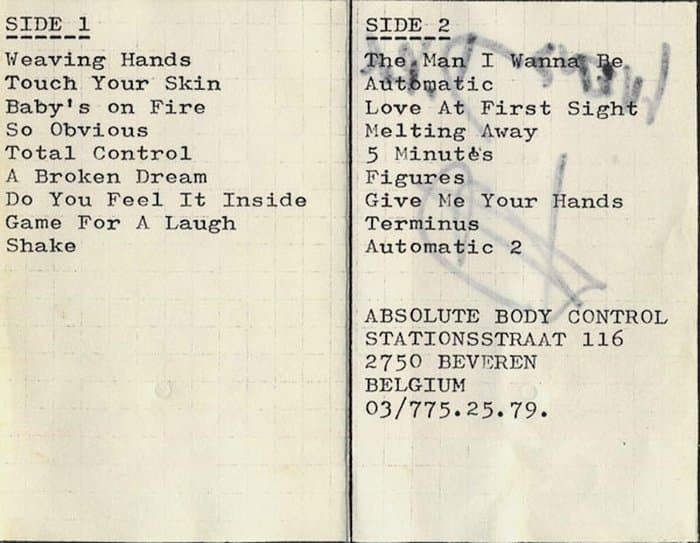 SIDE 1
Weaving Hands
Touch Your Skin
Baby's on Fire
So Obvious
Total Control
A Broken Dream
Do You Feel It Inside
Game For A Laugh
Shake
SIDE 2
The Man I Wanna Be
Automatic
Love At First Sight
Melting Away
5 Minutes
Figures
Give Me Your Hands
Terminus
Automatic 2
ABSOLUTE BODY CONTROL
STATIONSSTRAAT 116
2750 BEVEREN
BELGIUM
03/775.25.79.